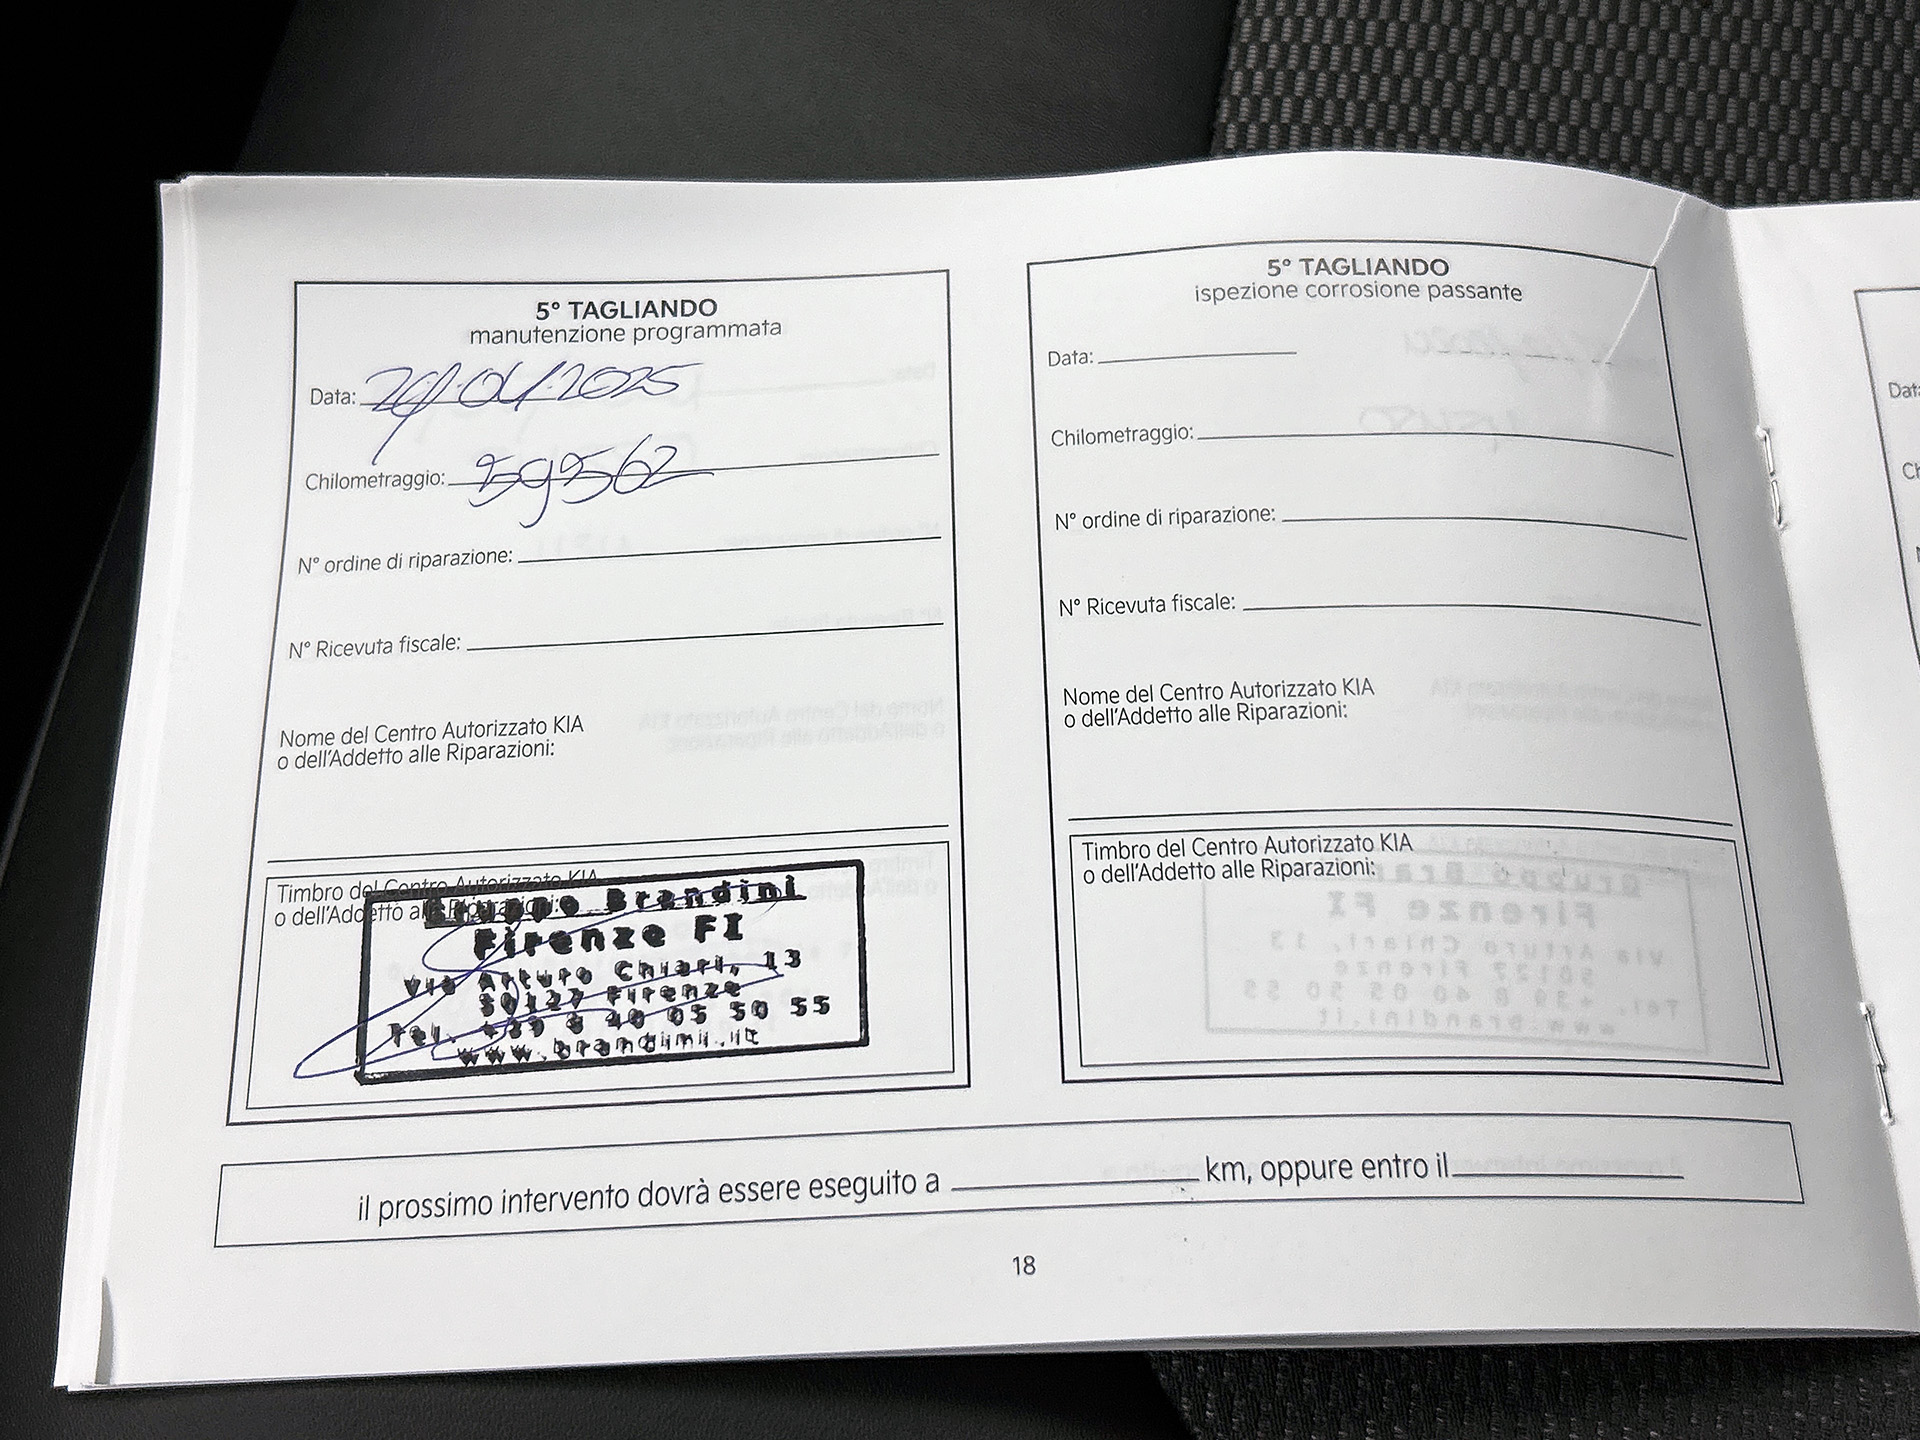 5° TAGLIANDO
manutenzione programmata
Data: 29/01/2025
Chilometraggio: 59562
N° ordine di riparazione:
N° Ricevuta fiscale:
Nome del Centro Autorizzato KIA
o dell'Addetto alle Riparazioni:
Timbro del Centro Autorizzato KIA
o dell'Addetto alle Riparazioni:
Gruppo Brandini
Firenze FI
Via Arturo Chiari, 13
50127 Firenze
Tel. +39 8 40 05 50 55
www.brandini.it
5° TAGLIANDO
ispezione corrosione passante
Data:
Chilometraggio:
N° ordine di riparazione:
N° Ricevuta fiscale:
Nome del Centro Autorizzato KIA
o dell'Addetto alle Riparazioni:
Timbro del Centro Autorizzato KIA
o dell'Addetto alle Riparazioni:
il prossimo intervento dovrà essere eseguito a km, oppure entro il
18